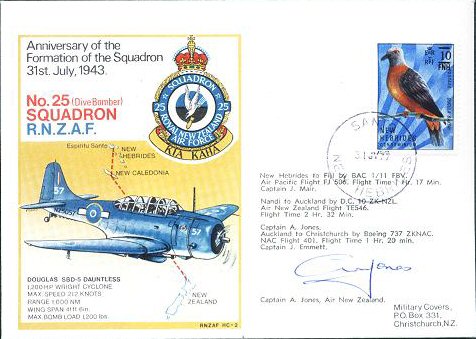 Anniversary of the
Formation of the Squadron
31st. July, 1943.
No. 25 (Dive Bomber)
SQUADRON
R.N.Z.A.F.
SQUADRON
25 25
ROYAL NEW ZEALAND
AIR FORCE
KIA KAHA
Espiritu Santo
NEW
HEBRIDES
NEW CALEDONIA
57
57
DOUGLAS SBD-5 DAUNTLESS
1,200 HP WRIGHT CYCLONE
MAX. SPEED 217 KNOTS
RANGE 1,000 NM
WING SPAN 41ft 6in
MAX BOMB LOAD 1,200 lbs
NEW
ZEALAND
RNZAF HC-2
10
NEW
HEBRIDES
CONDOMINIUM
SAN
HEBRI
New Hebrides to Fiji by BAC 1/11 FBV.
Air Pacific Flight FJ 506. Flight Time 1 Hr. 17 Min.
Captain J. Mair.
Nandi to Auckland by D.C. 10 ZK-NZL.
Air New Zealand Flight TE546.
Flight Time 2 Hr. 32 Min.
Captain A. Jones.
Auckland to Christchurch by Boeing 737 ZKNAC.
NAC Flight 401. Flight Time 1 Hr. 20 min.
Captain J. Emmett.
Jones
Captain A. Jones, Air New Zealand.
Military Covers,
P.O. Box 331,
Christchurch, N.Z.